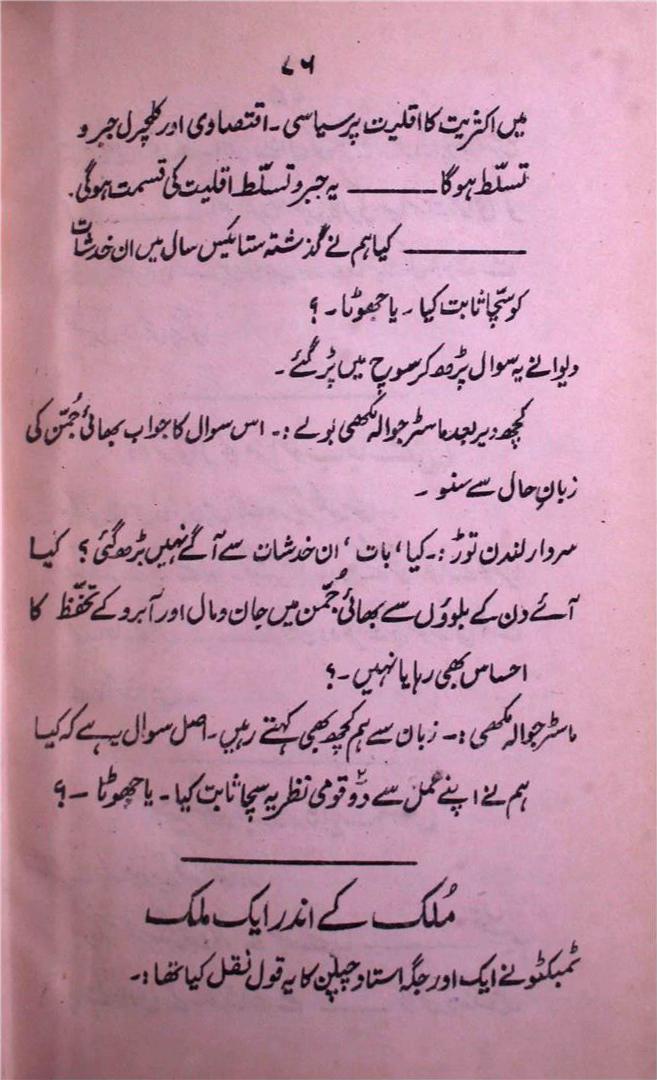 ۷۶
میں اکثریت کا اقلیت پر سیاسی ۔ اقتصادی اور کلچرل جبر و
تسلّط ہوگا ——— یہ جبر و تسلّط اقلیت کی قسمت ہوگی.
——— کیا ہم نے گذشتہ ستائیس سال میں ان خدشات
کو سچّا ثابت کیا ۔ یا جھوٹا ۔ ؟
دیوانے یہ سوال پڑھ کر سوچ میں پڑ گئے ۔
کچھ دیر بعد ماسٹر جوالہ مکھی بولے :۔ اس سوال کا جواب بھائی جُمّن کی
زبانِ حال سے سنو ۔
سردار لندن توڑ :۔ کیا ' بات ' ان خدشات سے آگے نہیں بڑھ گئی ؟ کیا
آئے دن کے بلوؤں سے بھائی جُمّن میں جان و مال اور آبرو کے تحفّظ کا
احساس بھی رہا یا نہیں ۔ ؟
ماسٹر جوالہ مکھی :۔ زبان سے ہم کچھ بھی کہتے رہیں ۔ اصل سوال یہ ہے کہ کیا
ہم نے اپنے عمل سے دو۲ قومی نظریہ سچا ثابت کیا ۔ یا جھوٹا ۔ ؟
مُلک کے اندر ایک ملک
ٹمبکٹو نے ایک اور جگہ استاد چپلن کا یہ قول نقل کیا تھا :۔